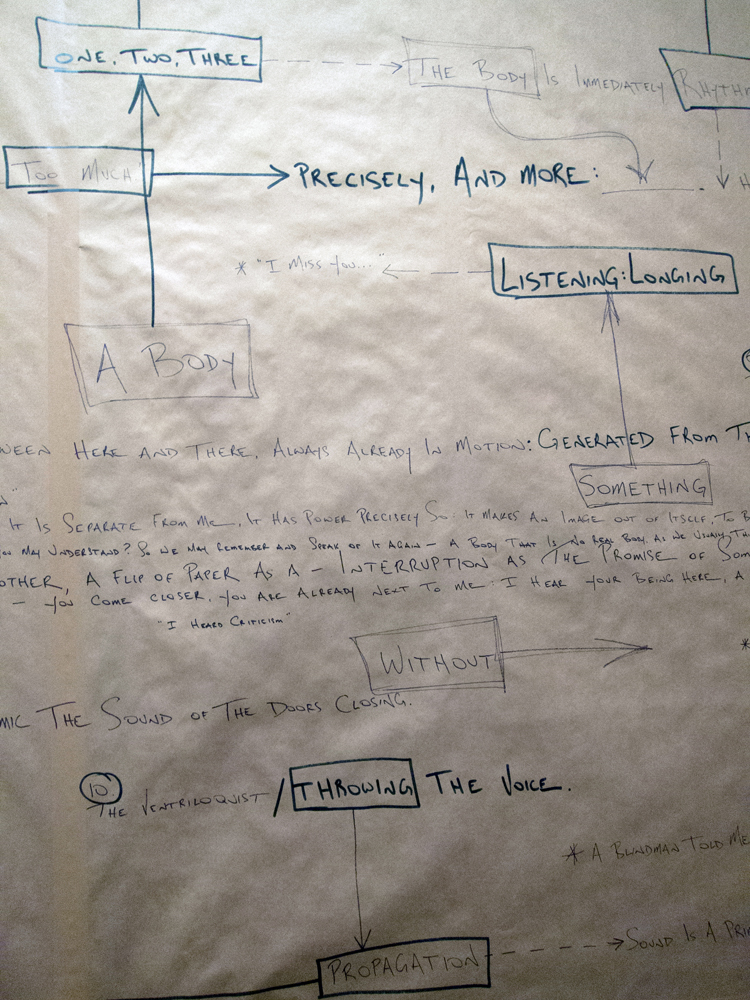 ONE, TWO, THREE
THE BODY IS IMMEDIATELY
TOO MUCH
PRECISELY, AND MORE:
* "I MISS YOU..."
LISTENING:LONGING
A BODY
HERE AND THERE, ALWAYS ALREADY IN MOTION: GENERATED FROM
SOMETHING
IT IS SEPARATE FROM ME, IT HAS POWER PRECISELY SO: IT MAKES AN IMAGE OUT OF ITSELF, TO
MAY UNDERSTAND? SO WE MAY REMEMBER AND SPEAK OF IT AGAIN – A BODY THAT IS NO REAL BODY, AS WE USUALLY
A FLIP OF PAPER AS A – INTERRUPTION AS THE PROMISE OF
– YOU COME CLOSER, YOU ARE ALREADY NEXT TO ME: I HEAR YOUR BEING HERE, A
"I HEARD CRITICISM"
WITHOUT
THE SOUND OF THE DOORS CLOSING.
10
THE VENTRILOQUIST / THROWING THE VOICE.
* A BLINDMAN TOLD ME
PROPAGATION
SOUND IS A